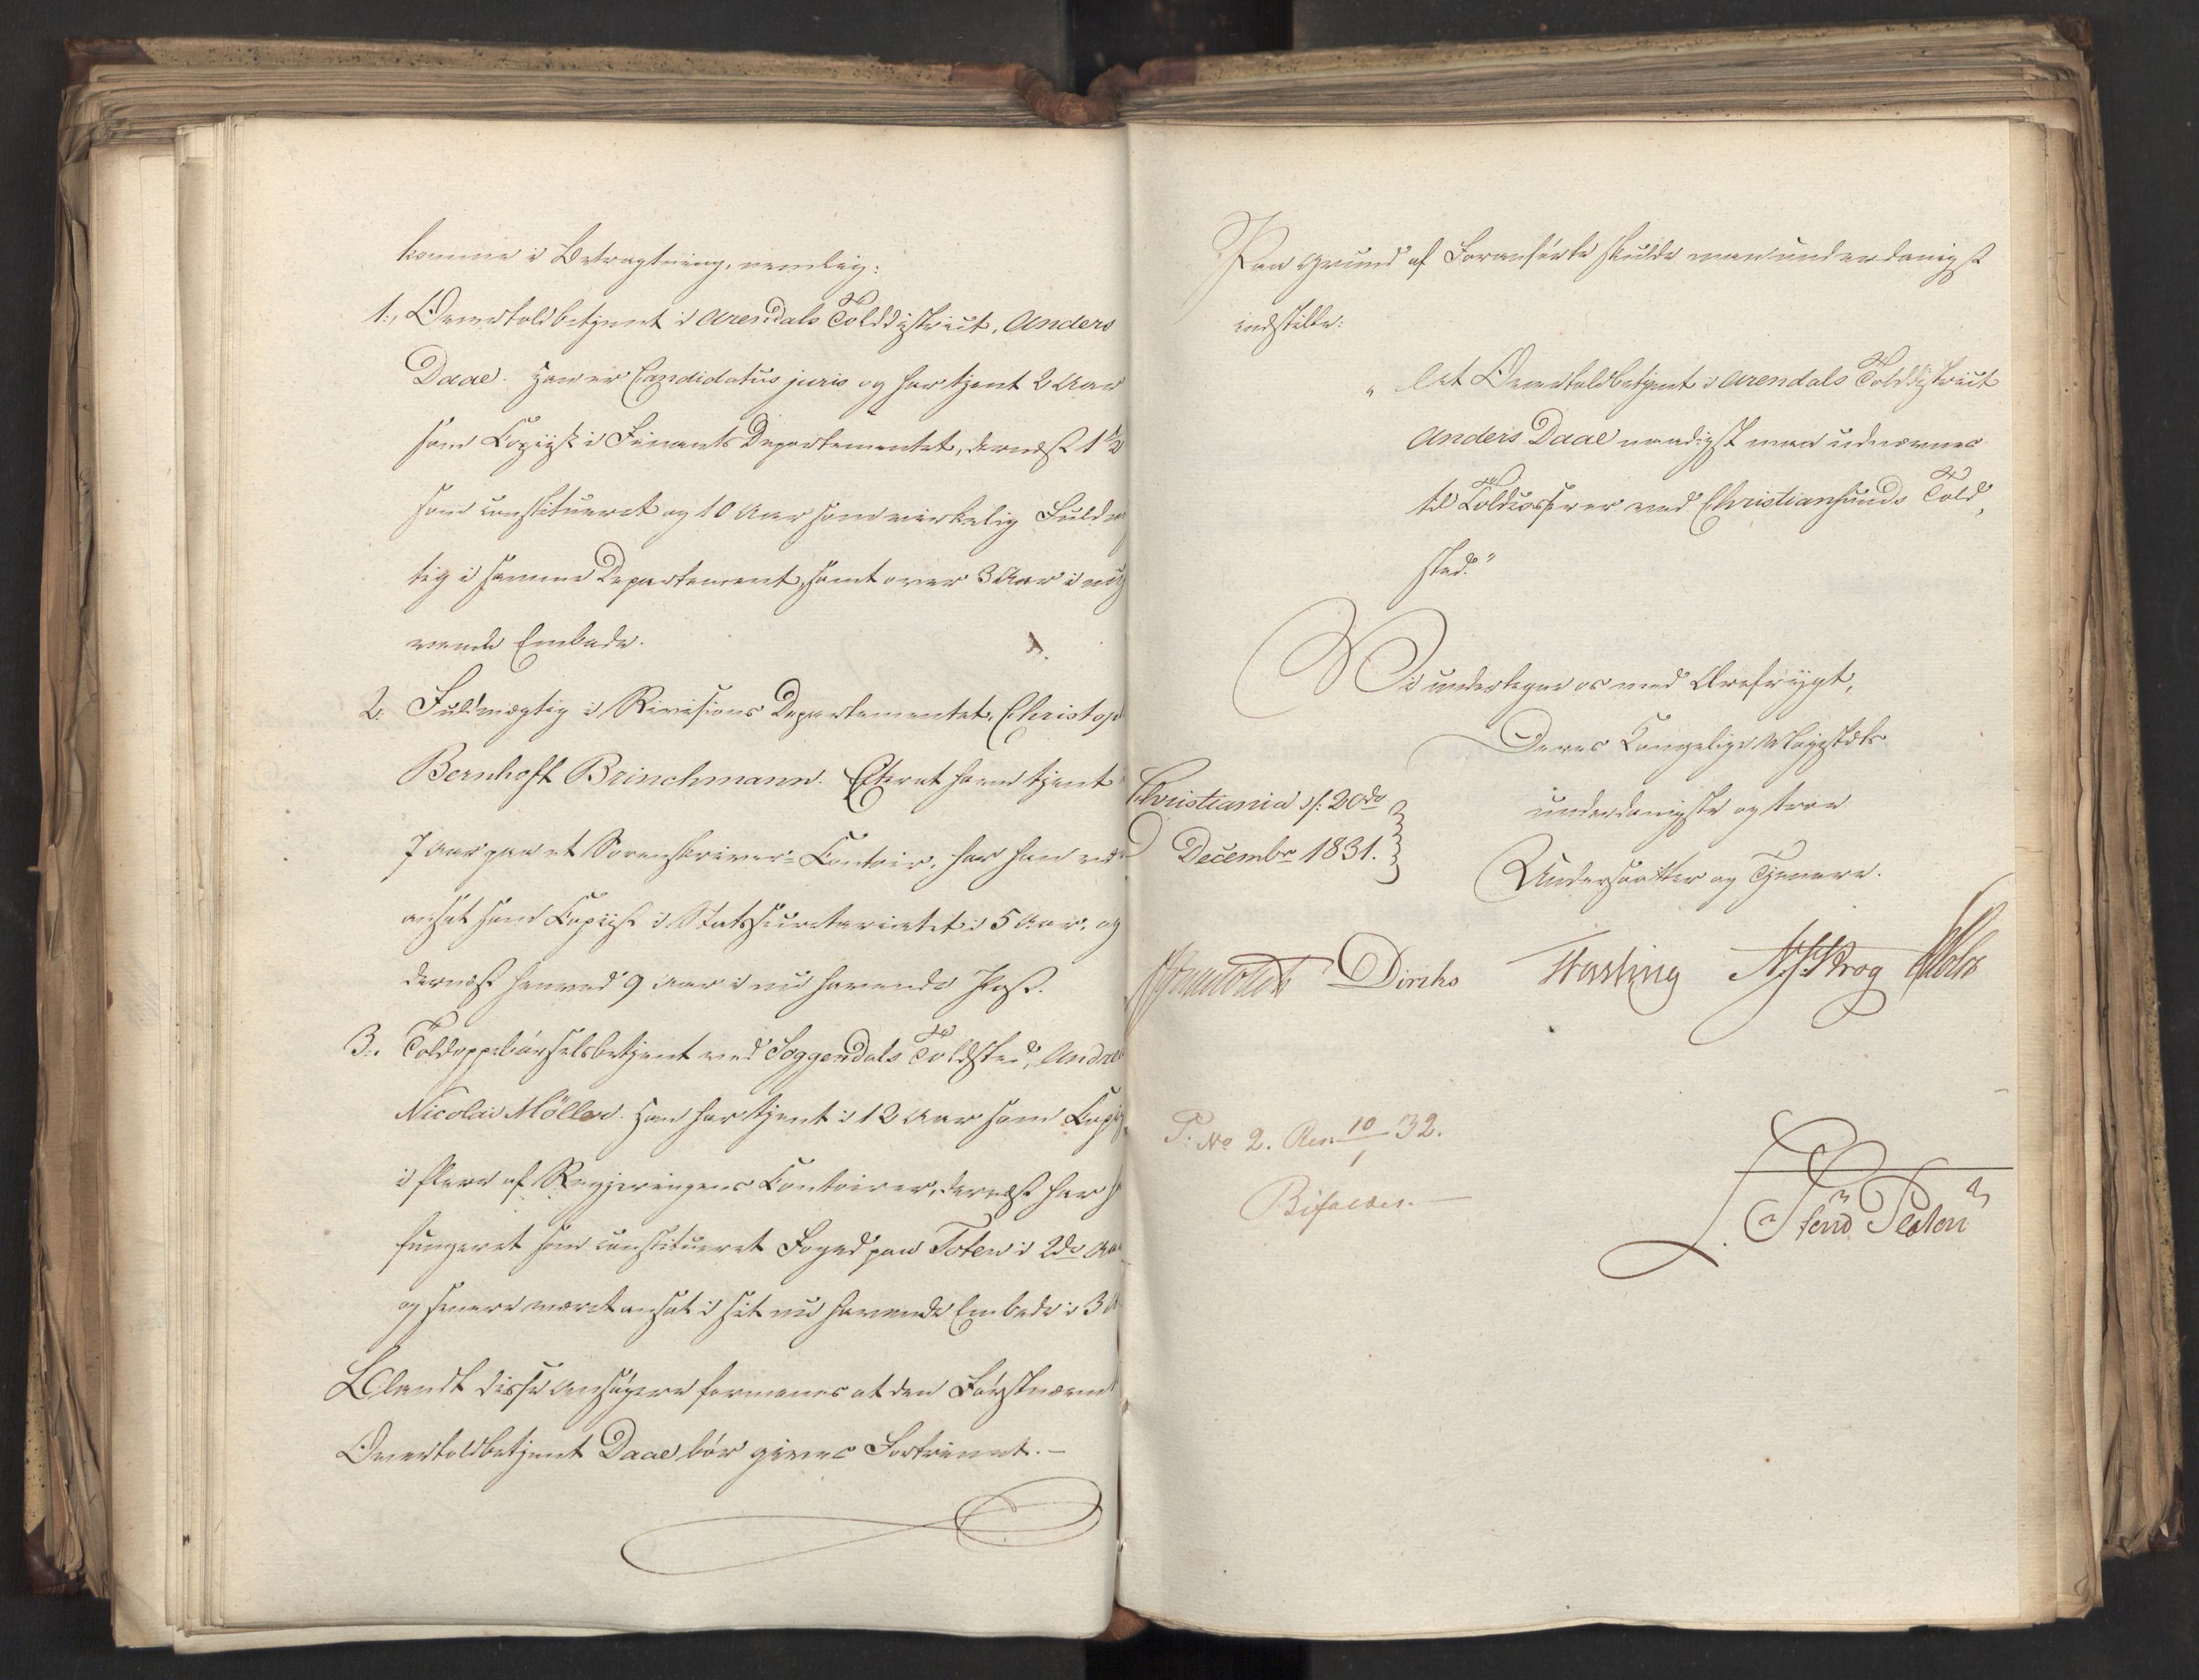 komme i Betragtning, nemlig:
1., Overtoldbetjent i Arendals Tolddistrict, Anders
Daae. Han er Candidatus juris og har tjent 2 Aar
som Copiist i Finants Departementet, dernæst 1 1/2
som constitueret og 10 Aar som virkelig Fuldmæ
tig i samme Departement, samt over 3 Aar i nuh
vende Embede.
2. Fuldmægtig i Revisions Departementet, Christop
Bernhoft Brinchmann. Efter at have tjent
7 Aar paa et Sorenskriver-Contoir, har han været
ansat som Copiist i Statssecretariatet i 5 Aar, og
dernæst henved 9 Aar i nu havende Post.
3., Toldoppebørselsbetjent ved Soggendals Toldsted, Andrea
Nicolai Möller. Han har tjent i 12 Aar som Copi
i flere af Regjeringens Contoirer, dernæst har h
fungeret som constitueret Foged paa Toten i 2de Aar
og senere været ansat i sit nu havende Embede i 3 A
Blandt disse Ansøgere formenes at den Førstnævnt
Overtoldbetjent Daae bør gives Fortrinnet.-
Paa Grund af Foranførte skulde man underdanigst
indstille:
"At Overtoldbetjent i Arendals Tolddistrict
Anders Daae naadigst maa udnævnes
til Toldcasserer ved Christiansunds Told,
sted."
Vi undertegne os med Ærefrygt,
Deres Kongelige Majestæts
Christiania d: 20de
underdanigste og troe
Decembr 1831.
Undersaatter og Tjenere.
Diriks Fasting Krog
P: No 2. Res. 10/1 32.
Bifaldes.-